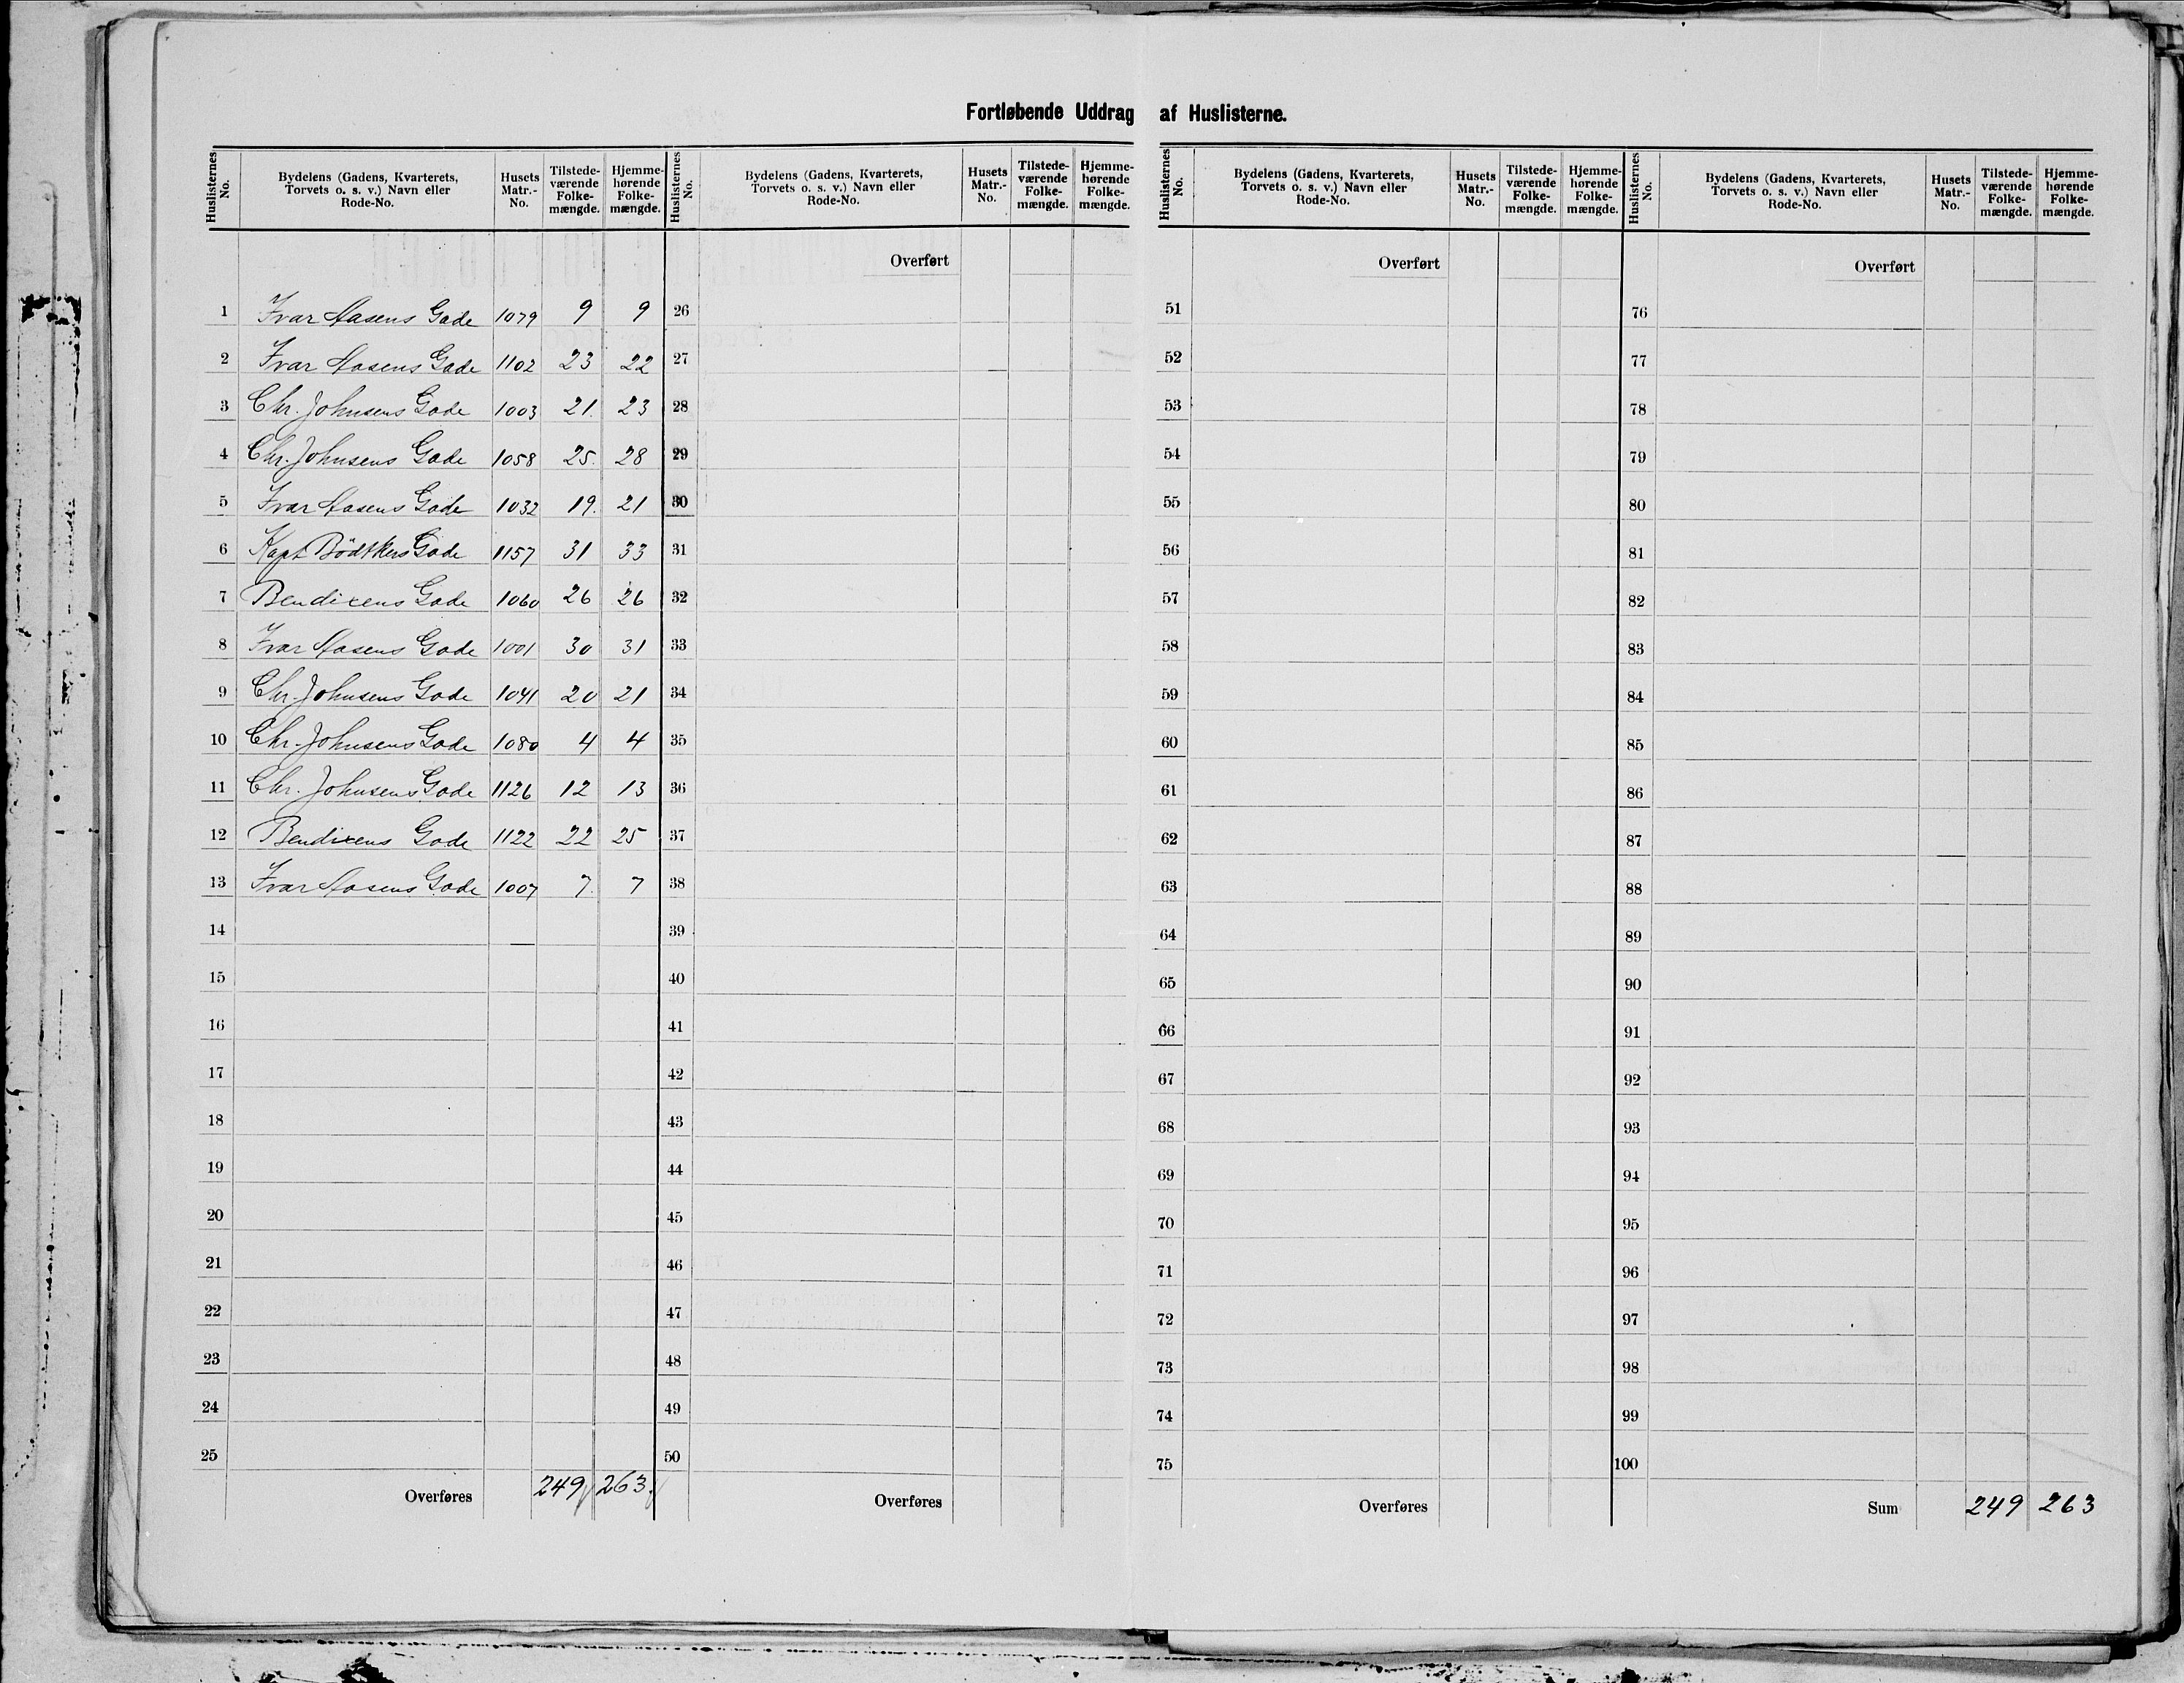 Fortløbende Uddrag af Huslisterne.
Huslisternes No. Bydelens (Gadens, Kvarterets, Torvets o. s. v.) Navn eller Rode-No. Husets Matr.-No. Tilstede-værende Folke-mængde. Hjemme-hørende Folke-mængde.
1 Ivar Aasens Gade 1079 9 9
2 Ivar Aasens Gade 1102 23 22
3 Chr. Johnsens Gade 1003 21. 23
4 Chr. Johnsens Gade 1058 25. 28
5 Ivar Aasens Gade 1032 19. 21
6 Kapt Bödtkers Gade 1157 31 33
7 Bendixens Gade 1060 26 26
8 Ivar Aasens Gade 1001 30 31
9 Chr. Johnsens Gade 1041 20 21
10 Chr. Johnsens Gade 1080 4 4
11 Chr. Johnsens Gade 1126 12 13
12 Bendixens Gade 1122 22 25
13 Ivar Aasens Gade 1007 7. 7
14
15
16
17
18
19
20
21
22
23
24
25
Overføres 249 263
Huslisternes No. Bydelens (Gadens, Kvarterets, Torvets o. s. v.) Navn eller Rode-No. Husets Matr.-No. Tilstede-værende Folke-mængde. Hjemme-hørende Folke-mængde.
Overført
26
27
28
29
30
31
32
33
34
35
36
37
38
39
40
41
42
43
44
45
46
47
48
49
50
Overføres
Huslisternes No. Bydelens (Gadens, Kvarterets, Torvets o. s. v.) Navn eller Rode-No. Husets Matr.-No. Tilstede-værende Folke-mængde. Hjemme-hørende Folke-mængde.
Overført
51
52
53
54
55
56
57
58
59
60
61
62
63
64
65
66
67
68
69
70
71
72
73
74
75
Overføres
Huslisternes No. Bydelens (Gadens, Kvarterets, Torvets o. s. v.) Navn eller Rode-No. Husets Matr.-No. Tilstede-værende Folke-mængde. Hjemme-hørende Folke-mængde.
Overført
76
77
78
79
80
81
82
83
84
85
86
87
88
89
90
91
92
93
94
95
96
97
98
99
100
Sum 249 263